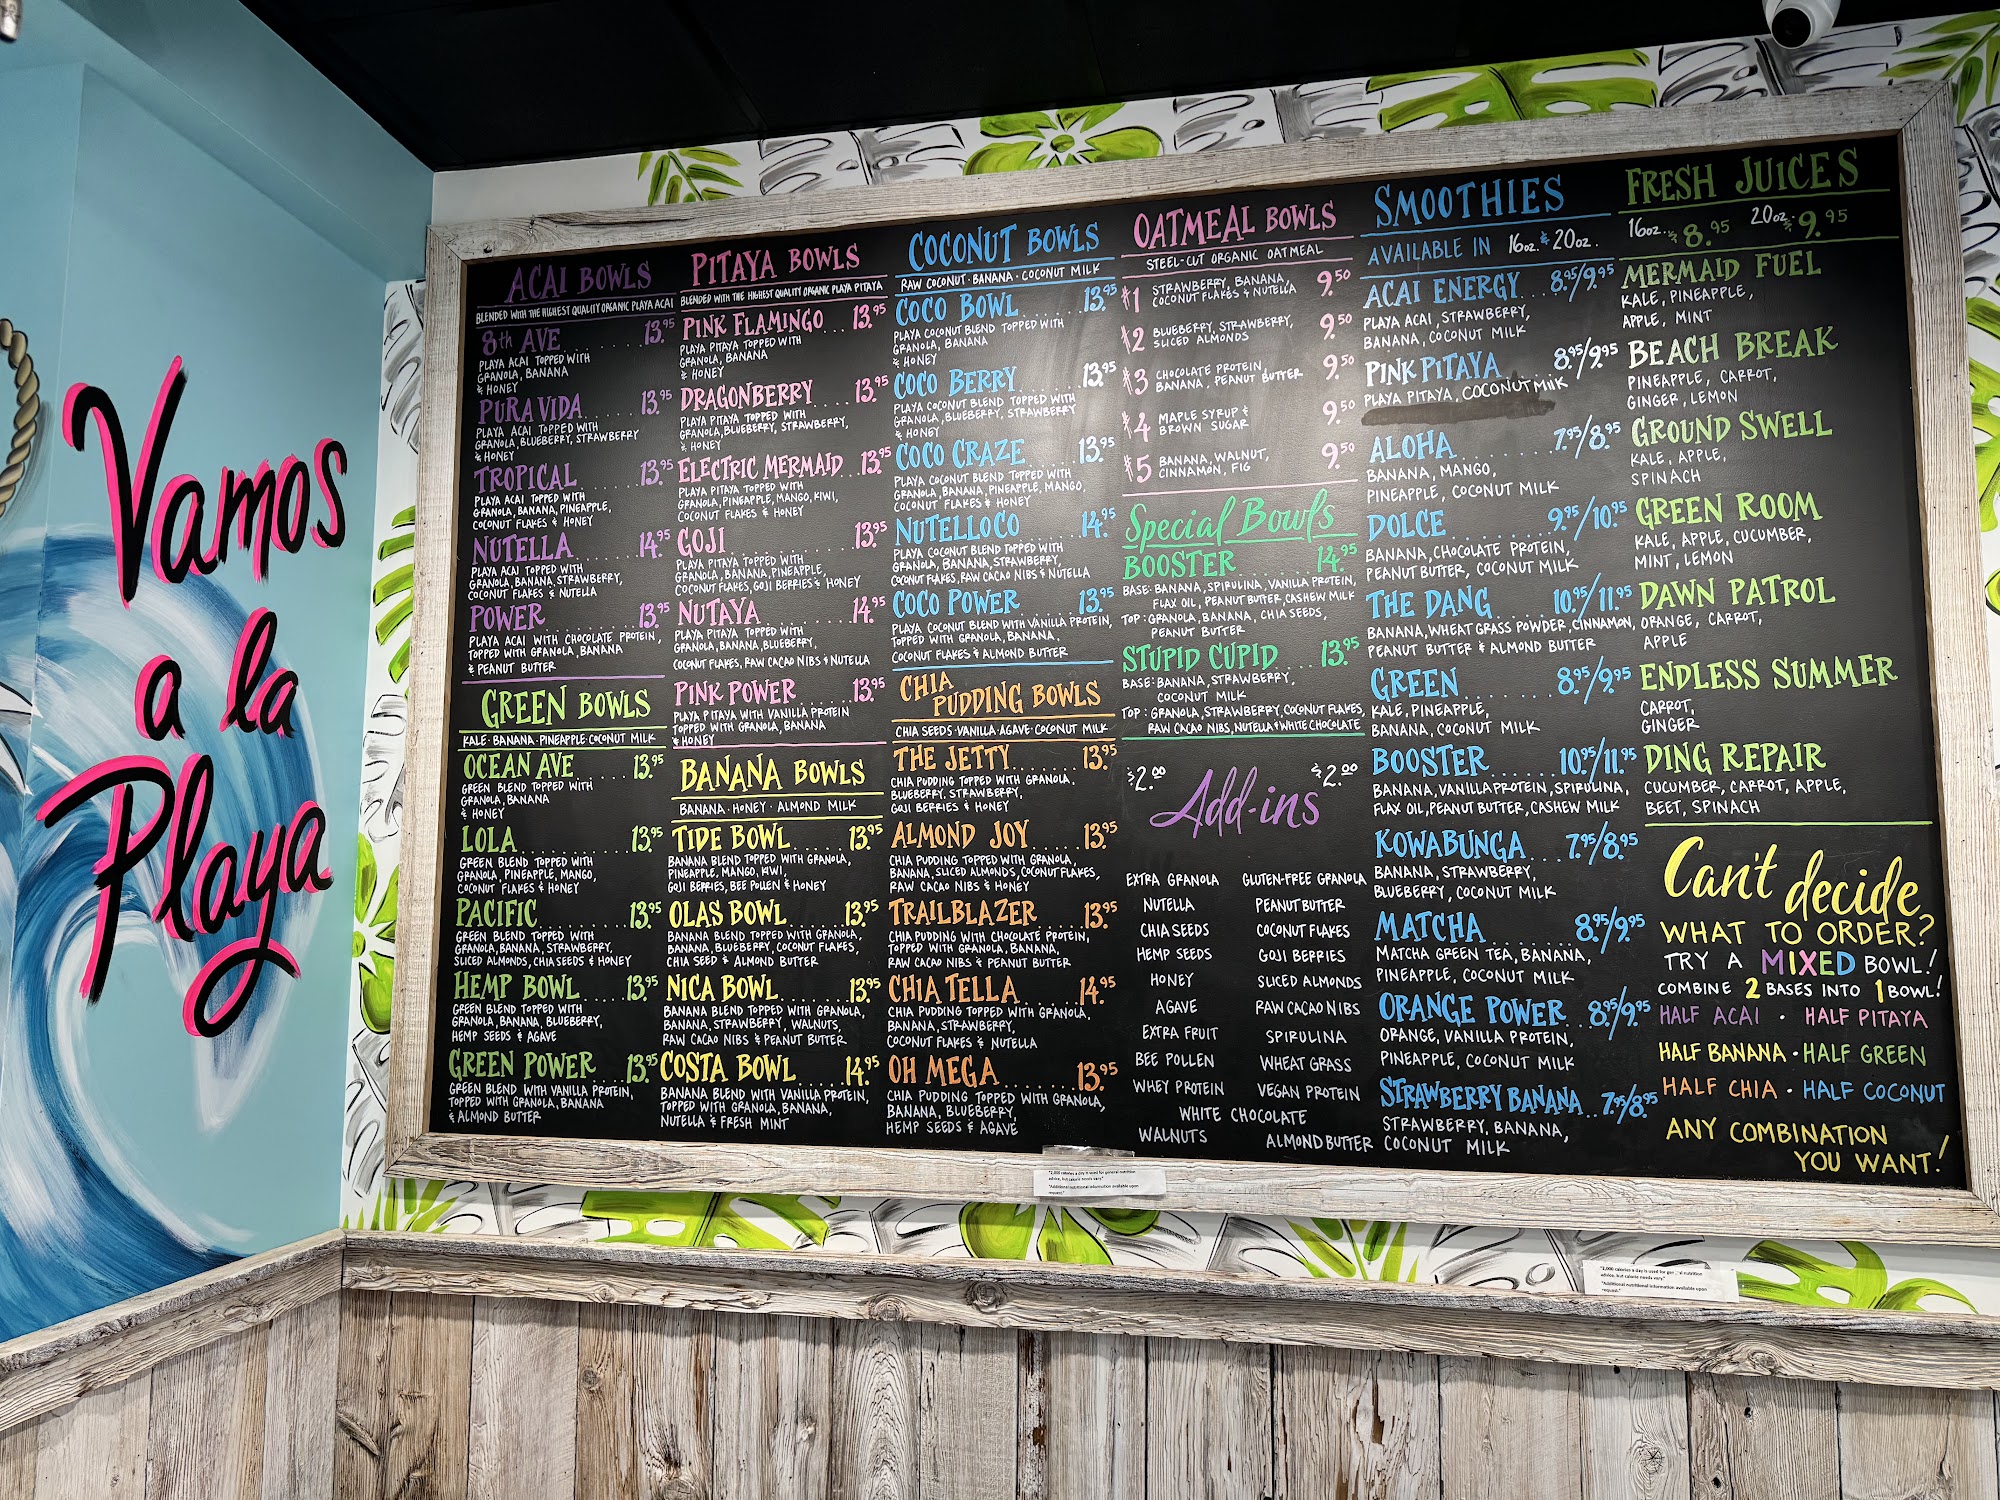 Vamos
a la
Playa
ACAI BOWLS
BLENDED WITH THE HIGHEST QUALITY ORGANIC PLAYA ACAI
8th AVE ........ 13.95
PLAYA ACAI TOPPED WITH
GRANOLA, BANANA
& HONEY
PURA VIDA ...... 13.95
PLAYA ACAI TOPPED WITH
GRANOLA, BLUEBERRY, STRAWBERRY
& HONEY
TROPICAL ....... 13.95
PLAYA ACAI TOPPED WITH
GRANOLA, BANANA, PINEAPPLE,
COCONUT FLAKES & HONEY
NUTELLA ........ 14.95
PLAYA ACAI TOPPED WITH
GRANOLA, BANANA, STRAWBERRY,
COCONUT FLAKES & NUTELLA
POWER .......... 13.95
PLAYA ACAI WITH CHOCOLATE PROTEIN,
TOPPED WITH GRANOLA, BANANA
& PEANUT BUTTER
GREEN BOWLS
KALE · BANANA · PINEAPPLE · COCONUT MILK
OCEAN AVE ...... 13.95
GREEN BLEND TOPPED WITH
GRANOLA, BANANA
& HONEY
LOLA ........... 13.95
GREEN BLEND TOPPED WITH
GRANOLA, PINEAPPLE, MANGO,
COCONUT FLAKES & HONEY
PACIFIC ........ 13.95
GREEN BLEND TOPPED WITH
GRANOLA, BANANA, STRAWBERRY,
SLICED ALMONDS, CHIA SEEDS & HONEY
HEMP BOWL ..... 13.95
GREEN BLEND TOPPED WITH
GRANOLA, BANANA, BLUEBERRY,
HEMP SEEDS & AGAVE
GREEN POWER ... 13.95
GREEN BLEND WITH VANILLA PROTEIN,
TOPPED WITH GRANOLA, BANANA
& ALMOND BUTTER
PITAYA BOWLS
BLENDED WITH THE HIGHEST QUALITY ORGANIC PLAYA PITAYA
PINK FLAMINGO ... 13.95
PLAYA PITAYA TOPPED WITH
GRANOLA, BANANA
& HONEY
DRAGONBERRY .... 13.95
PLAYA PITAYA TOPPED WITH
GRANOLA, BLUEBERRY, STRAWBERRY,
& HONEY
ELECTRIC MERMAID .. 13.95
PLAYA PITAYA TOPPED WITH
GRANOLA, PINEAPPLE, MANGO, KIWI,
COCONUT FLAKES & HONEY
GOJI ............ 13.95
PLAYA PITAYA TOPPED WITH
GRANOLA, BANANA, PINEAPPLE,
COCONUT FLAKES, GOJI BERRIES & HONEY
NUTAYA ......... 14.95
PLAYA PITAYA TOPPED WITH
GRANOLA, BANANA, BLUEBERRY,
COCONUT FLAKES, RAW CACAO NIBS & NUTELLA
PINK POWER ...... 13.95
PLAYA PITAYA WITH VANILLA PROTEIN
TOPPED WITH GRANOLA, BANANA
& HONEY
BANANA BOWLS
BANANA · HONEY · ALMOND MILK
TIDE BOWL ...... 13.95
BANANA BLEND TOPPED WITH GRANOLA,
PINEAPPLE, MANGO, KIWI,
GOJI BERRIES, BEE POLLEN & HONEY
OLAS BOWL ...... 13.95
BANANA BLEND TOPPED WITH GRANOLA,
BANANA, BLUEBERRY, COCONUT FLAKES,
CHIA SEED & ALMOND BUTTER
NICA BOWL ....... 13.95
BANANA BLEND TOPPED WITH GRANOLA,
BANANA, STRAWBERRY, WALNUTS,
RAW CACAO NIBS & PEANUT BUTTER
COSTA BOWL .... 14.95
BANANA BLEND WITH VANILLA PROTEIN,
TOPPED WITH GRANOLA, BANANA,
NUTELLA & FRESH MINT
COCONUT BOWLS
RAW COCONUT · BANANA · COCONUT MILK
COCO BOWL ..... 13.95
PLAYA COCONUT BLEND TOPPED WITH
GRANOLA, BANANA
& HONEY
COCO BERRY ..... 13.95
PLAYA COCONUT BLEND TOPPED WITH
GRANOLA, BLUEBERRY, STRAWBERRY
& HONEY
COCO CRAZE .... 13.95
PLAYA COCONUT BLEND TOPPED WITH
GRANOLA, BANANA, PINEAPPLE, MANGO,
COCONUT FLAKES & HONEY
NUTELLOCO ..... 14.95
PLAYA COCONUT BLEND TOPPED WITH
GRANOLA, BANANA, STRAWBERRY,
COCONUT FLAKES, RAW CACAO NIBS & NUTELLA
COCO POWER .... 13.95
PLAYA COCONUT BLEND WITH VANILLA PROTEIN,
TOPPED WITH GRANOLA, BANANA,
COCONUT FLAKES & ALMOND BUTTER
CHIA
PUDDING BOWLS
CHIA SEEDS · VANILLA · AGAVE · COCONUT MILK
THE JETTY ...... 13.95
CHIA PUDDING TOPPED WITH GRANOLA,
BLUEBERRY, STRAWBERRY,
GOJI BERRIES & HONEY
ALMOND JOY .... 13.95
CHIA PUDDING TOPPED WITH GRANOLA,
BANANA, SLICED ALMONDS, COCONUT FLAKES,
RAW CACAO NIBS & HONEY
TRAILBLAZER .... 13.95
CHIA PUDDING WITH CHOCOLATE PROTEIN,
TOPPED WITH GRANOLA, BANANA,
RAW CACAO NIBS & PEANUT BUTTER
CHIA TELLA ..... 14.95
CHIA PUDDING TOPPED WITH GRANOLA,
BANANA, STRAWBERRY,
COCONUT FLAKES & NUTELLA
OH MEGA ....... 13.95
CHIA PUDDING TOPPED WITH GRANOLA,
BANANA, BLUEBERRY,
HEMP SEEDS & AGAVE
OATMEAL BOWLS
STEEL-CUT ORGANIC OATMEAL
#1 STRAWBERRY, BANANA, 9.50
COCONUT FLAKES & NUTELLA
#2 BLUEBERRY, STRAWBERRY, 9.50
SLICED ALMONDS
#3 CHOCOLATE PROTEIN, 9.50
BANANA, PEANUT BUTTER
#4 MAPLE SYRUP & 9.50
BROWN SUGAR
#5 BANANA, WALNUT, 9.50
CINNAMON, FIG
Special Bowls
BOOSTER ........ 14.95
BASE: BANANA, SPIRULINA, VANILLA PROTEIN,
FLAX OIL, PEANUT BUTTER, CASHEW MILK
TOP: GRANOLA, BANANA, CHIA SEEDS,
PEANUT BUTTER
STUPID CUPID .... 13.95
BASE: BANANA, STRAWBERRY,
COCONUT MILK
TOP: GRANOLA, STRAWBERRY, COCONUT FLAKES,
RAW CACAO NIBS, NUTELLA & WHITE CHOCOLATE
$2.00 Add-ins $2.00
EXTRA GRANOLA GLUTEN-FREE GRANOLA
NUTELLA PEANUT BUTTER
CHIA SEEDS COCONUT FLAKES
HEMP SEEDS GOJI BERRIES
HONEY SLICED ALMONDS
AGAVE RAW CACAO NIBS
EXTRA FRUIT SPIRULINA
BEE POLLEN WHEAT GRASS
WHEY PROTEIN VEGAN PROTEIN
WHITE CHOCOLATE
WALNUTS ALMOND BUTTER
SMOOTHIES
AVAILABLE IN 16oz. & 20oz.
ACAI ENERGY ... 8.95/9.95
PLAYA ACAI, STRAWBERRY,
BANANA, COCONUT MILK
PINK PITAYA 8.95/9.95
PLAYA PITAYA, COCONUT MILK
ALOHA ......... 7.95/8.95
BANANA, MANGO,
PINEAPPLE, COCONUT MILK
DOLCE ......... 9.95/10.95
BANANA, CHOCOLATE PROTEIN,
PEANUT BUTTER, COCONUT MILK
THE DANG ...... 10.95/11.95
BANANA, WHEAT GRASS POWDER, CINNAMON,
PEANUT BUTTER & ALMOND BUTTER
GREEN ......... 8.95/9.95
KALE, PINEAPPLE,
BANANA, COCONUT MILK
BOOSTER ....... 10.95/11.95
BANANA, VANILLA PROTEIN, SPIRULINA,
FLAX OIL, PEANUT BUTTER, CASHEW MILK
KOWABUNGA ... 7.95/8.95
BANANA, STRAWBERRY,
BLUEBERRY, COCONUT MILK
MATCHA ........ 8.95/9.95
MATCHA GREEN TEA, BANANA,
PINEAPPLE, COCONUT MILK
ORANGE POWER .. 8.95/9.95
ORANGE, VANILLA PROTEIN,
PINEAPPLE, COCONUT MILK
STRAWBERRY BANANA .. 7.95/8.95
STRAWBERRY, BANANA,
COCONUT MILK
FRESH JUICES
16oz. $8.95 20oz. $9.95
MERMAID FUEL
KALE, PINEAPPLE,
APPLE, MINT
BEACH BREAK
PINEAPPLE, CARROT,
GINGER, LEMON
GROUND SWELL
KALE, APPLE,
SPINACH
GREEN ROOM
KALE, APPLE, CUCUMBER,
MINT, LEMON
DAWN PATROL
ORANGE, CARROT,
APPLE
ENDLESS SUMMER
CARROT,
GINGER
DING REPAIR
CUCUMBER, CARROT, APPLE,
BEET, SPINACH
Can't decide
WHAT TO ORDER?
TRY A MIXED BOWL!
COMBINE 2 BASES INTO 1 BOWL!
HALF ACAI · HALF PITAYA
HALF BANANA · HALF GREEN
HALF CHIA · HALF COCONUT
ANY COMBINATION
YOU WANT!
"2,000 calories a day is used for general nutrition
advice, but calorie needs vary."
"Additional nutritional information available upon
request."
"2,000 calories a day is used for general nutrition
advice, but calorie needs vary."
"Additional nutritional information available upon
request."